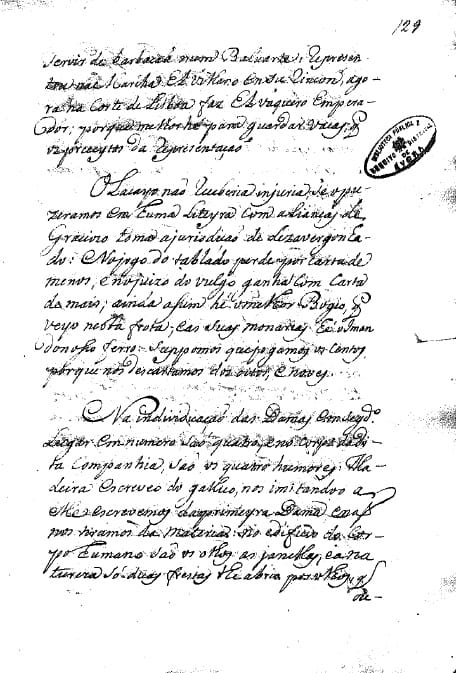 129
servir de barbacãa num Baluarte: Represen-
tou na Marinha El Villano en su Rincon, ago-
ra na Corte de Lisboa faz El Vaqueiro Empera-
dor; porque melhor he para guardar Vacas, q̃
os preceytos da Representação.
O Lacayo não Receberia injuria, se o pu-
zeramos em huma Liteyra com as
Gracioso toma a jurisdição de dezavergonha-
do: No jogo do tablado perde por carta de
menos, e no juizo do vulgo ganha com Carta
de mais; ainda asim he o melhor Bogio, q̃
veyo nesta frota; e as suas monarias
ferro: Suppomos que jogamos os Centos,
porque nos descartamos dos outos, e noves.
Na individuação das Damas em segdo.
Lugar em numero são quatro, e no corpo da di-
ta Companhia, são os quatro humores: Ma-
deira escreveo do galico, nos imitando a
escrevemos da primeyra Dama
nos tiramos da materia: No edificio do Cor-
po humano são os olhos as janelas, e a na
tureza só duas frestas lhe abrio por olhos, q̃
de-
BIBLIOTECA PUBLICA E
ARQUIVO DISTRITAL
DE
EVORA